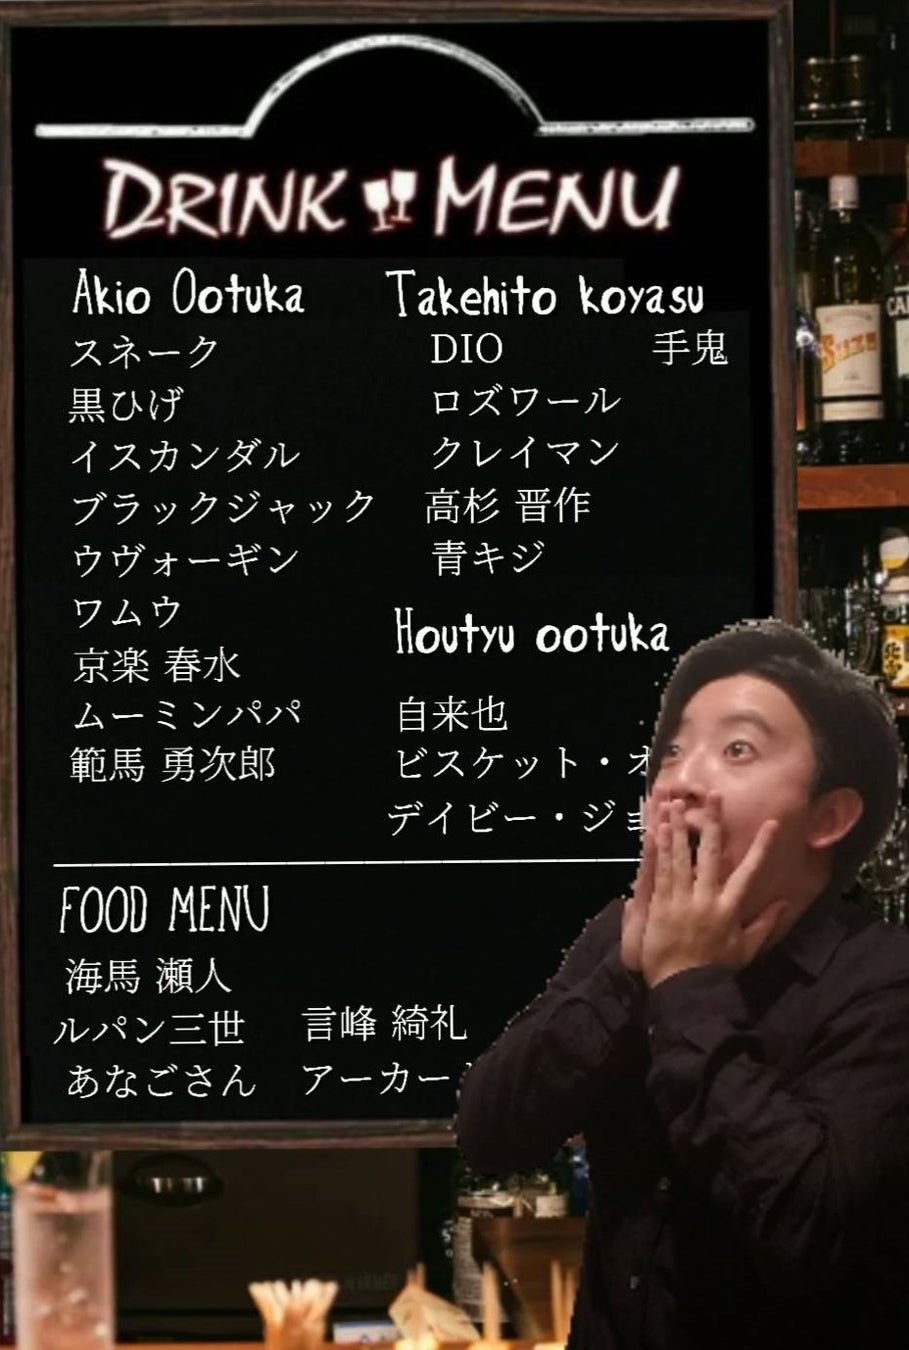 DRINK MENU
Akio Ootuka
スネーク
黒ひげ
イスカンダル
ブラックジャック
ウヴォーギン
ワムウ
京楽 春水
ムーミンパパ
範馬 勇次郎
Takehito koyasu
DIO 手鬼
ロズワール
クレイマン
高杉 晋作
青キジ
Houtyu ootuka
自来也
ビスケット・オ
デイビー・ジョ
FOOD MENU
海馬 瀬人
ルパン三世 言峰 綺礼
あなごさん アーカー